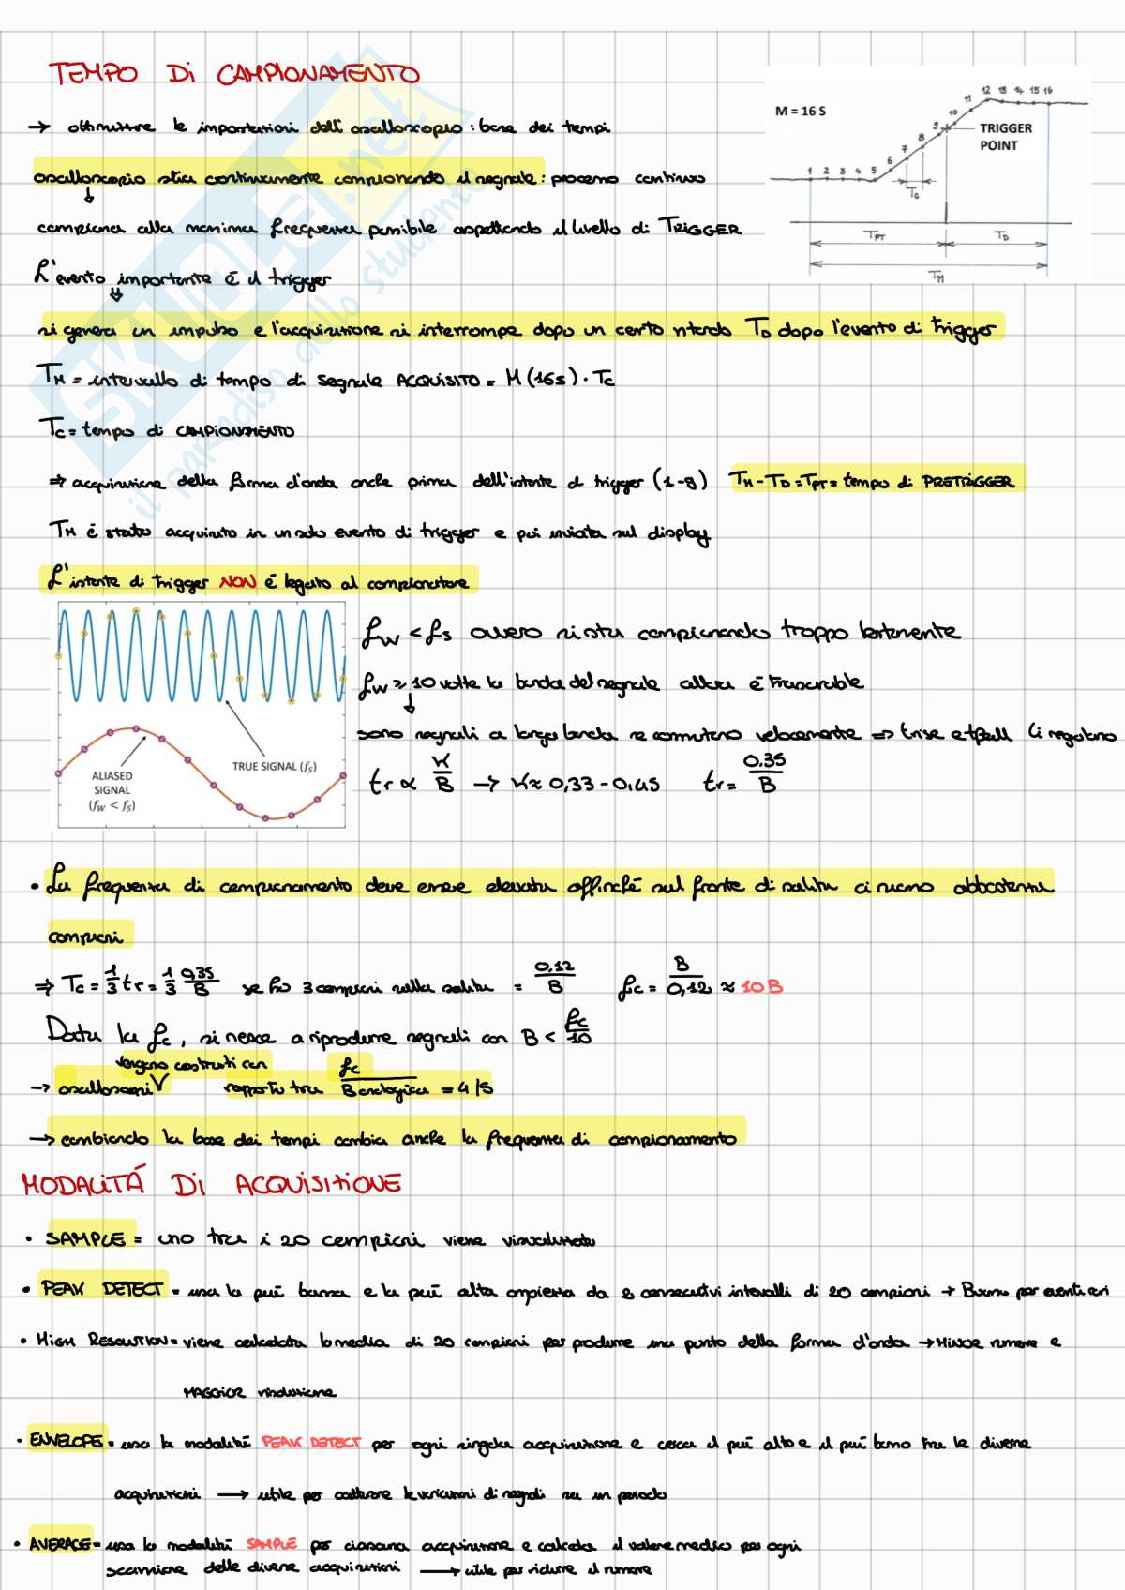 TEMPO Di CAMPIONAMENTO
→ ottimizzare le impostazioni dell'oscilloscopio: base dei tempi
oscilloscopio sta continuamente campionando il segnale: processo continuo
↓
campiona alla massima frequenza possibile aspettando il livello di TRIGGER
L'evento importante é il trigger
⇓
si genera un impulso e l'acquisizione si interrompe dopo un certo ritardo TD dopo l'evento di trigger
TM = intervallo di tempo di segnale ACQUISITO = M(16s)·TC
TC = tempo di CAMPIONAMENTO
⇒ acquisizione della forma d'onda anche prima dell'istante di trigger (1-8) TM-TD=TPT= tempo di PRETRIGGER
TM é stato acquisito in un solo evento di trigger e poi inviato sul display
L'istante di trigger NON é legato al campionatore
M = 16 S
1 2 3 4 5 6 7 8 9 10 11 12 13 14 15 16
TRIGGER
POINT
TC
TPT TD
TM
TRUE SIGNAL (fS)
ALIASED
SIGNAL
(fW < fS)
fW < fS ovvero si sta campionando troppo lentamente
fW ≈ 10 volte la banda del segnale allora é trascurabile
↓
sono segnali a larga banda se commutano velocemente ⇒ trise e tfall li regolano
tr ∝ K/B → K ≈ 0,33 - 0,45 tr = 0.35/B
• La frequenza di campionamento deve essere elevata affinché sul fronte di salita ci siano abbastanza
campioni
⇒ TC = 1/3 tr = 1/3 0,35/B se ho 3 campioni nella salita = 0,12/B fC = B/0,12 ≈ 10 B
Data la fC, si riesce a riprodurre segnali con B < fC/10
→ oscilloscopi vengono costruiti con rapporto tra fC/B analogica = 4/5
→ cambiando la base dei tempi cambia anche la frequenza di campionamento
MODALITÁ Di ACQUISIZIONE
• SAMPLE = uno tra i 20 campioni viene visualizzato
• PEAK DETECT = usa la piú bassa e la piú alta ampiezza da 2 consecutivi intervalli di 20 campioni → Buono per eventi
• HIGH RESOLUTION = viene calcolata la media di 20 campioni per produrre un punto della forma d'onda → MINOR rumore e
MAGGIOR risoluzione
• ENVELOPE = usa la modalitá PEAK DETECT per ogni singola acquisizione e cerca il piú alto e il piú basso tra le diverse
acquisizioni → utile per catturare le variazioni di segnali in un periodo
• AVERAGE = usa la modalitá SAMPLE per ciascuna acquisizione e calcola il valore medio per ogni
scansione delle diverse acquisizioni → utile per ridurre il rumore
SKUOLA.net
il paradiso dello studente